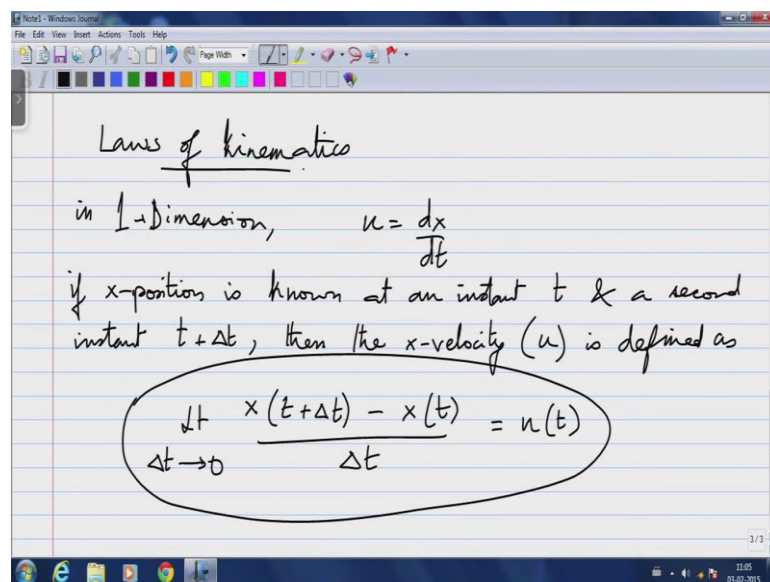 Note1 - Windows Journal
File Edit View Insert Actions Tools Help
Page Width
B I
Laws of kinematics
in 1-Dimension, u = dx/dt
if x-position is known at an instant t & a second
instant t + Δt, then the x-velocity (u) is defined as
Lt Δt→0 x(t+Δt) - x(t) / Δt = u(t)
3/3
11:05
03-02-2015